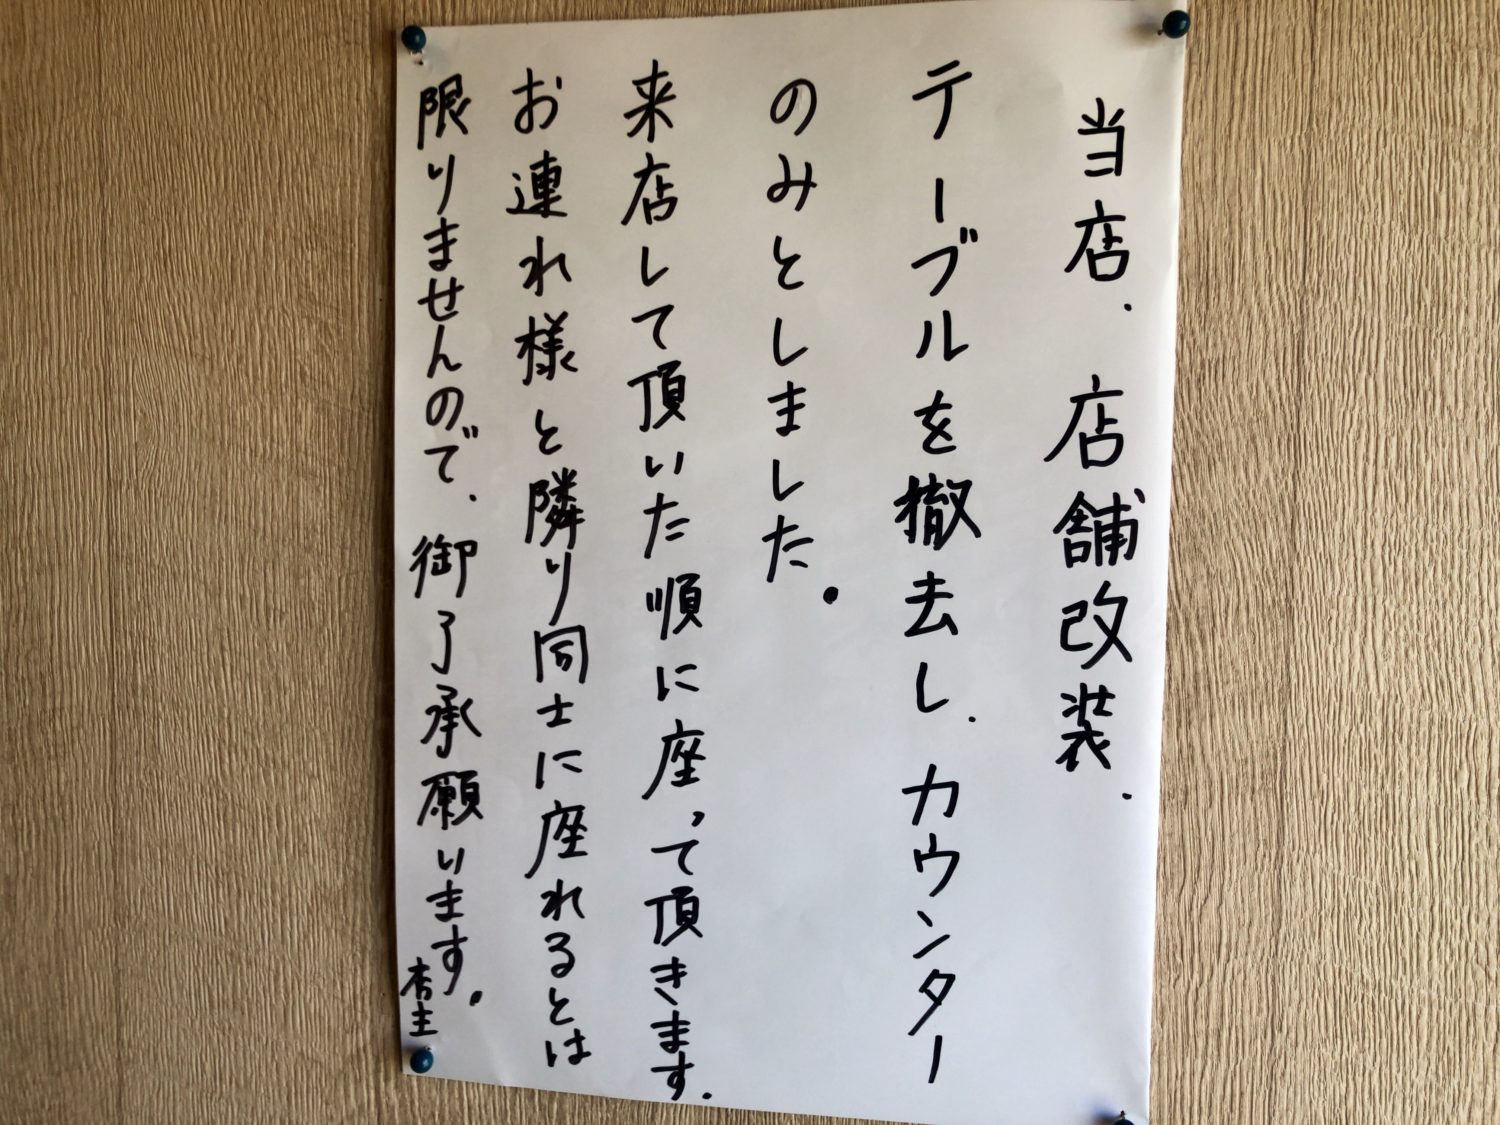 当店、店舗改装、
テーブルを撤去し、カウンター
のみとしました。
来店して頂いた順に座って頂きます。
お連れ様と隣り同士に座れるとは
限りませんので、御了承願います。
店主